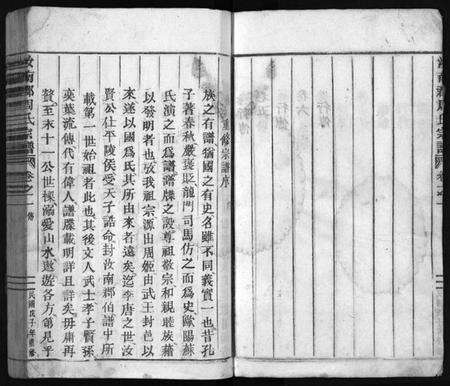 重修宗譜序
族之有譜猶國之有史名雖不同義實一也昔孔
子著春秋嚴褒貶龍門司馬仿之而為史歐陽蘇
氏演之而為譜譜牒之設尊祖敬宗和親睦族藉
以發明者也故我祖宗源由周姬由武王封邑以
來遂以國為氏其所由來者遠矣迄李唐之世汝
賢公仕平陵侯受天子誥命封汝南郡伯譜中所
載第一世始祖者此也其後文人武士孝子賢孫
奕葉流傳代有偉人譜牒載明詳且詳矣毋庸再
贅至末十一公世極溺愛山水遨遊各方第見乎
汝南郡周氏宗譜 卷之一 序
民國戊子年重修
汝南郡周氏宗譜 卷之一